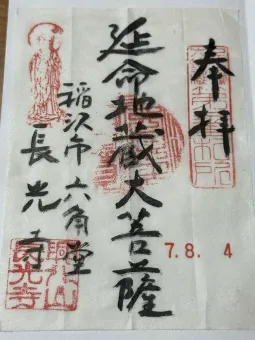 奉拝
7.8. 4
延命地蔵大菩薩
稲沢市 六角堂
長光寺
長光寺